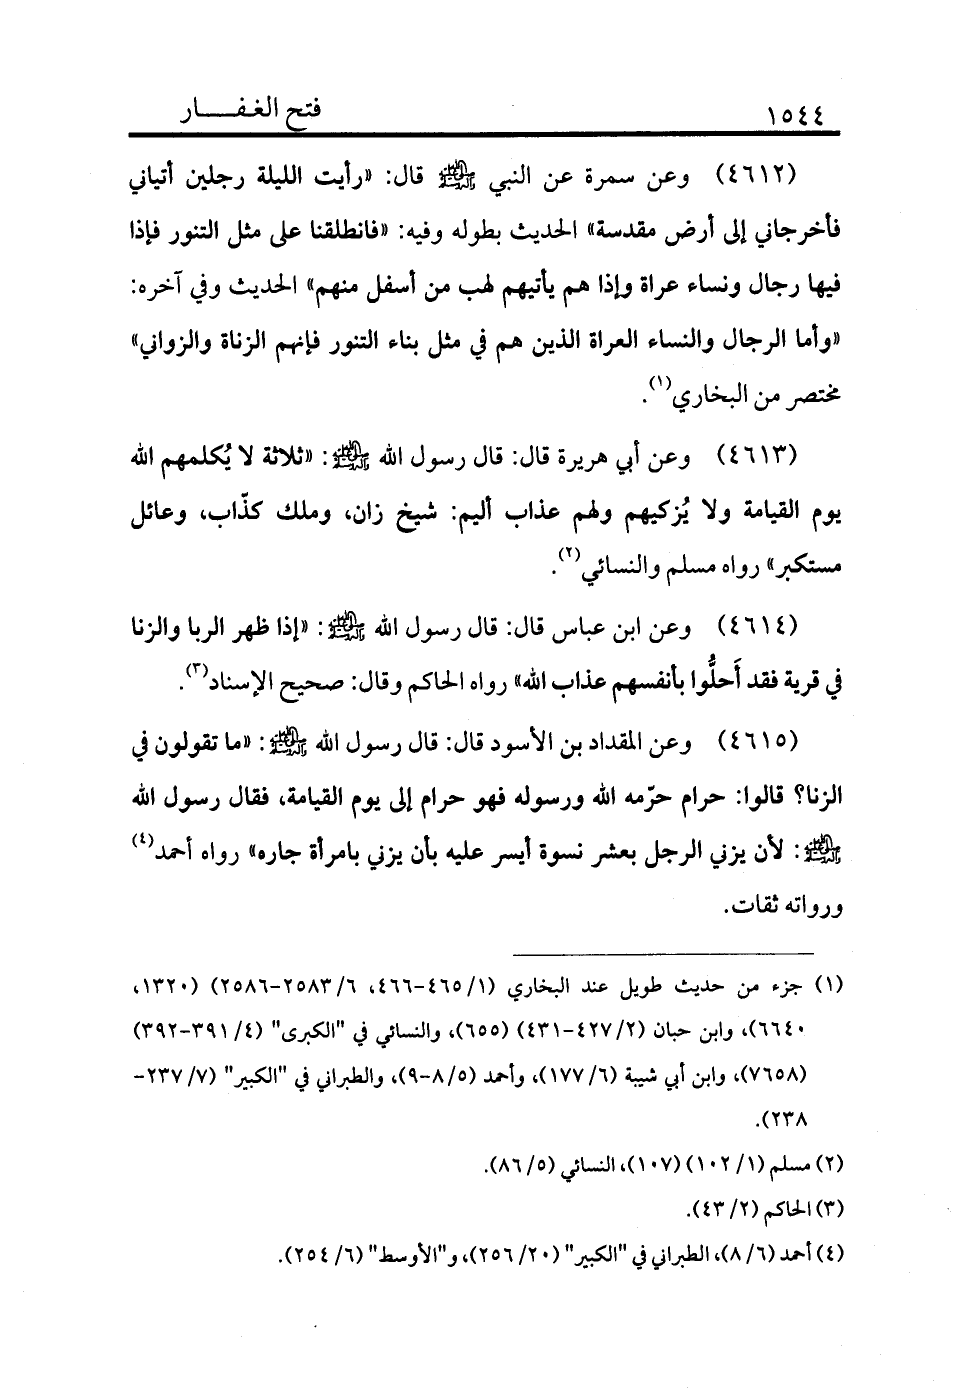 ١٥٤٤ فتح الغفـــــار
(٤٦١٢) وعن سمرة عن النبي ﷺ قال: «رأيت الليلة رجلين أتياني
فأخرجاني إلى أرض مقدسة» الحديث بطوله وفيه: «فانطلقنا على مثل التنور فإذا
فيها رجال ونساء عراة وإذا هم يأتيهم لهب من أسفل منهم» الحديث وفي آخره:
«وأما الرجال والنساء العراة الذين هم في مثل بناء التنور فإنهم الزناة والزواني»
مختصر من البخاري(١).
(٤٦١٣) وعن أبي هريرة قال: قال رسول الله ﷺ: «ثلاثة لا يُكلمهم الله
يوم القيامة ولا يُزكيهم ولهم عذاب أليم: شيخ زان، وملك كذّاب، وعائل
مستكبر» رواه مسلم والنسائي(٢).
(٤٦١٤) وعن ابن عباس قال: قال رسول الله ﷺ: «إذا ظهر الربا والزنا
في قرية فقد أَحلُّوا بأنفسهم عذاب الله» رواه الحاكم وقال: صحيح الإسناد(٣).
(٤٦١٥) وعن المقداد بن الأسود قال: قال رسول الله ﷺ: «ما تقولون في
الزنا؟ قالوا: حرام حرّمه الله ورسوله فهو حرام إلى يوم القيامة، فقال رسول الله
ﷺ: لأن يزني الرجل بعشر نسوة أيسر عليه بأن يزني بامرأة جاره» رواه أحمد(٤)
ورواته ثقات.
(١) جزء من حديث طويل عند البخاري (١/ ٤٦٥-٤٦٦، ٦/ ٢٥٨٣-٢٥٨٦) (١٣٢٠،
٦٦٤٠)، وابن حبان (٢/ ٤٢٧-٤٣١) (٦٥٥)، والنسائي في "الكبرى" (٤/ ٣٩١-٣٩٢)
(٧٦٥٨)، وابن أبي شيبة (٦/ ١٧٧)، وأحمد (٥/ ٨-٩)، والطبراني في "الكبير" (٧/ ٢٣٧-
٢٣٨).
(٢) مسلم (١/ ١٠٢) (١٠٧)، النسائي (٥/ ٨٦).
(٣) الحاكم (٢/ ٤٣).
(٤) أحمد (٦/ ٨)، الطبراني في "الكبير" (٢٠/ ٢٥٦)، و"الأوسط" (٦/ ٢٥٤).